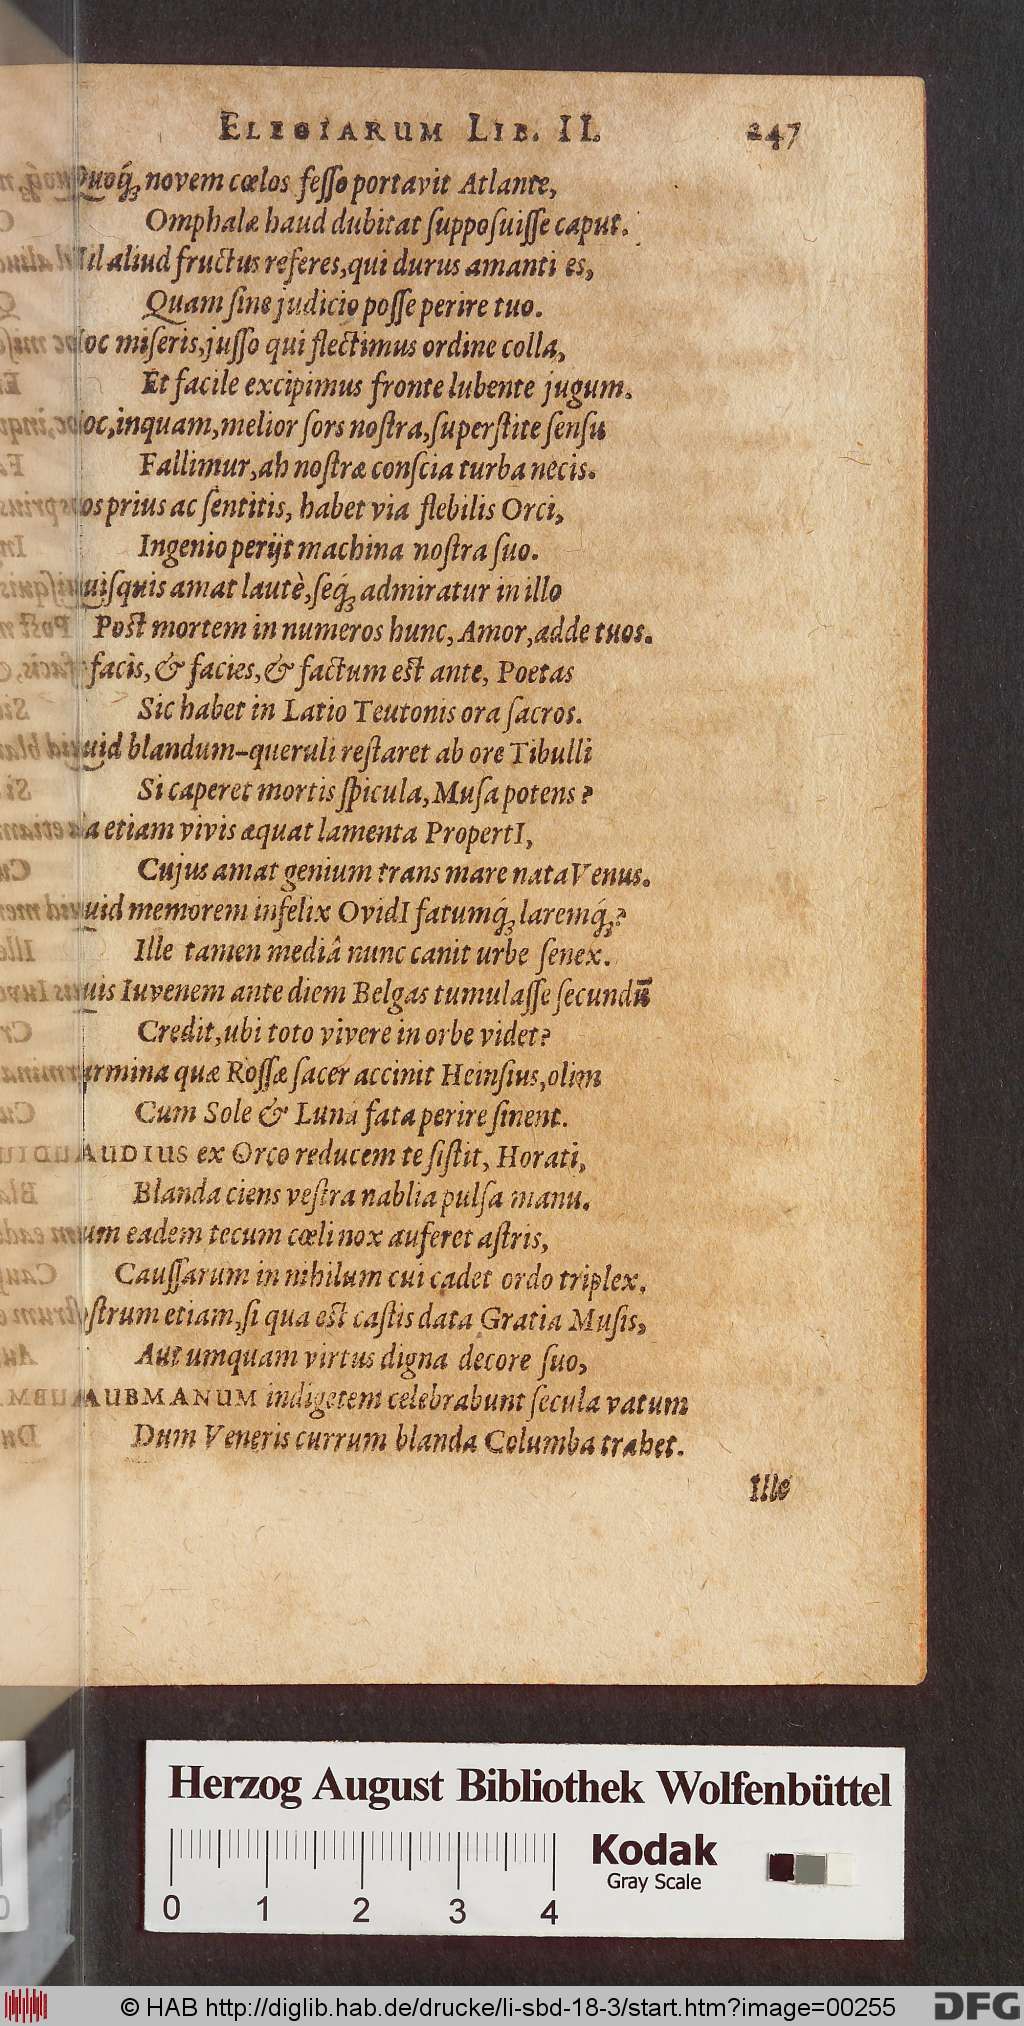 ELEGIARUM LIB. II. 247
Quoq́; novem cœlos feſſo portavit Atlante,
Omphalæ haud dubitat ſuppoſuiſſe caput.
Nil aliud fructus referes, qui durus amanti es,
Quam ſine judicio poſſe perire tuo.
Hoc miſeris, juſſo qui flectimus ordine colla,
Et facile excipimus fronte lubente jugum.
Hoc, inquam, melior ſors noſtra, ſuperſtite ſenſu
Fallimur, ah noſtræ conſcia turba necis.
Vos prius ac ſentitis, habet via flebilis Orci,
Ingenio perijt machina noſtra ſuo.
Quiſquis amat lautè, ſeq́; admiratur in illo
Poſt mortem in numeros hunc, Amor, adde tuos.
facis, & facies, & factum eſt ante, Poetas
Sic habet in Latio Teutonis ora ſacros.
Quid blandum-queruli reſtaret ab ore Tibulli
Si caperet mortis ſpicula, Muſa potens?
etiam vivis æquat lamenta PropertI,
Cujus amat genium trans mare nata Venus.
Quid memorem infelix OvidI fatumq́; laremq́;?
Ille tamen mediâ nunc canit urbe ſenex.
Quis Iuvenem ante diem Belgas tumulaſſe ſecundū
Credit, ubi toto vivere in orbe videt?
Carmina quæ Roſſæ ſacer accinit Heinſius, olim
Cum Sole & Luna fata perire ſinent.
AUDIUS ex Orco reducem te ſiſtit, Horati,
Blanda ciens veſtra nablia pulſa manu.
eadem tecum cœli nox auferet aſtris,
Cauſſarum in nihilum cui cadet ordo triplex.
Noſtrum etiam, ſi qua eſt caſtis data Gratia Muſis,
Aut umquam virtus digna decore ſuo,
TAUBMANUM indigetem celebrabunt ſecula vatum
Dum Veneris currum blanda Columba trahet.
Ille
Herzog August Bibliothek Wolfenbüttel
Kodak
Gray Scale
0 1 2 3 4
© HAB http://diglib.hab.de/drucke/li-sbd-18-3/start.htm?image=00255
DFG